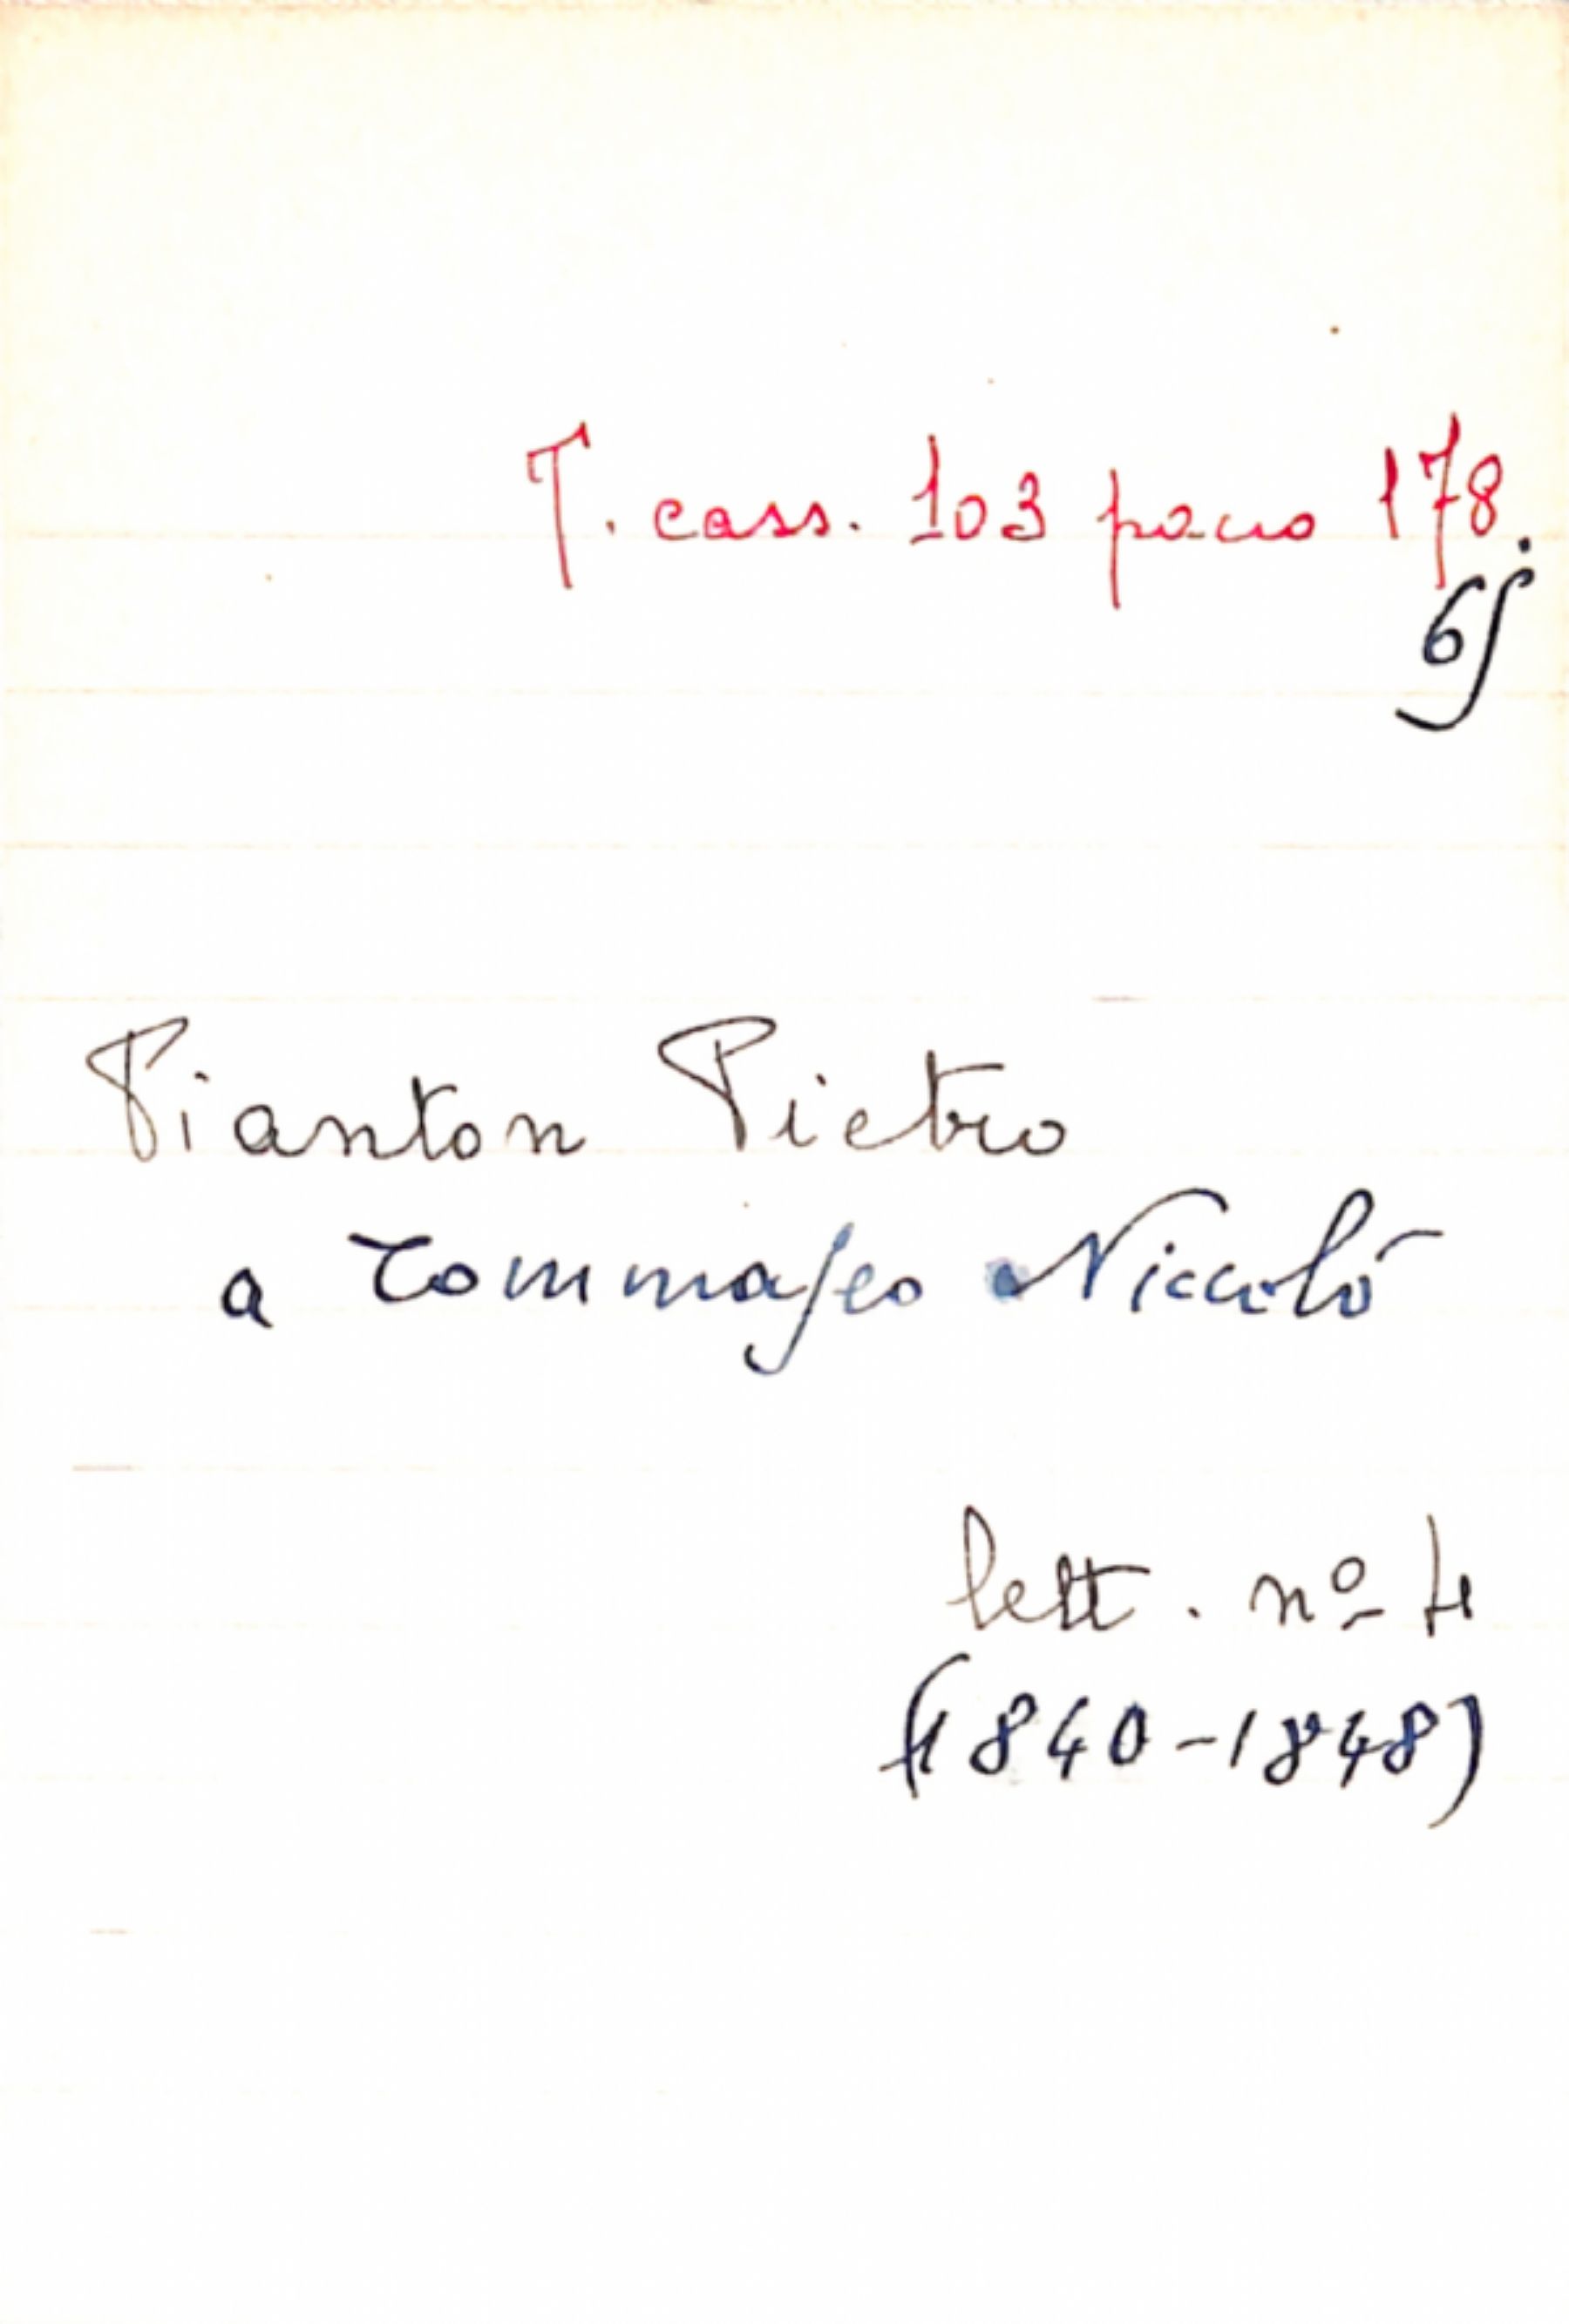 T. cass. 103 pacco 178.
65
Pianton Pietro
a Tommaseo Niccolò
lett. nº 4
(1840-1848)